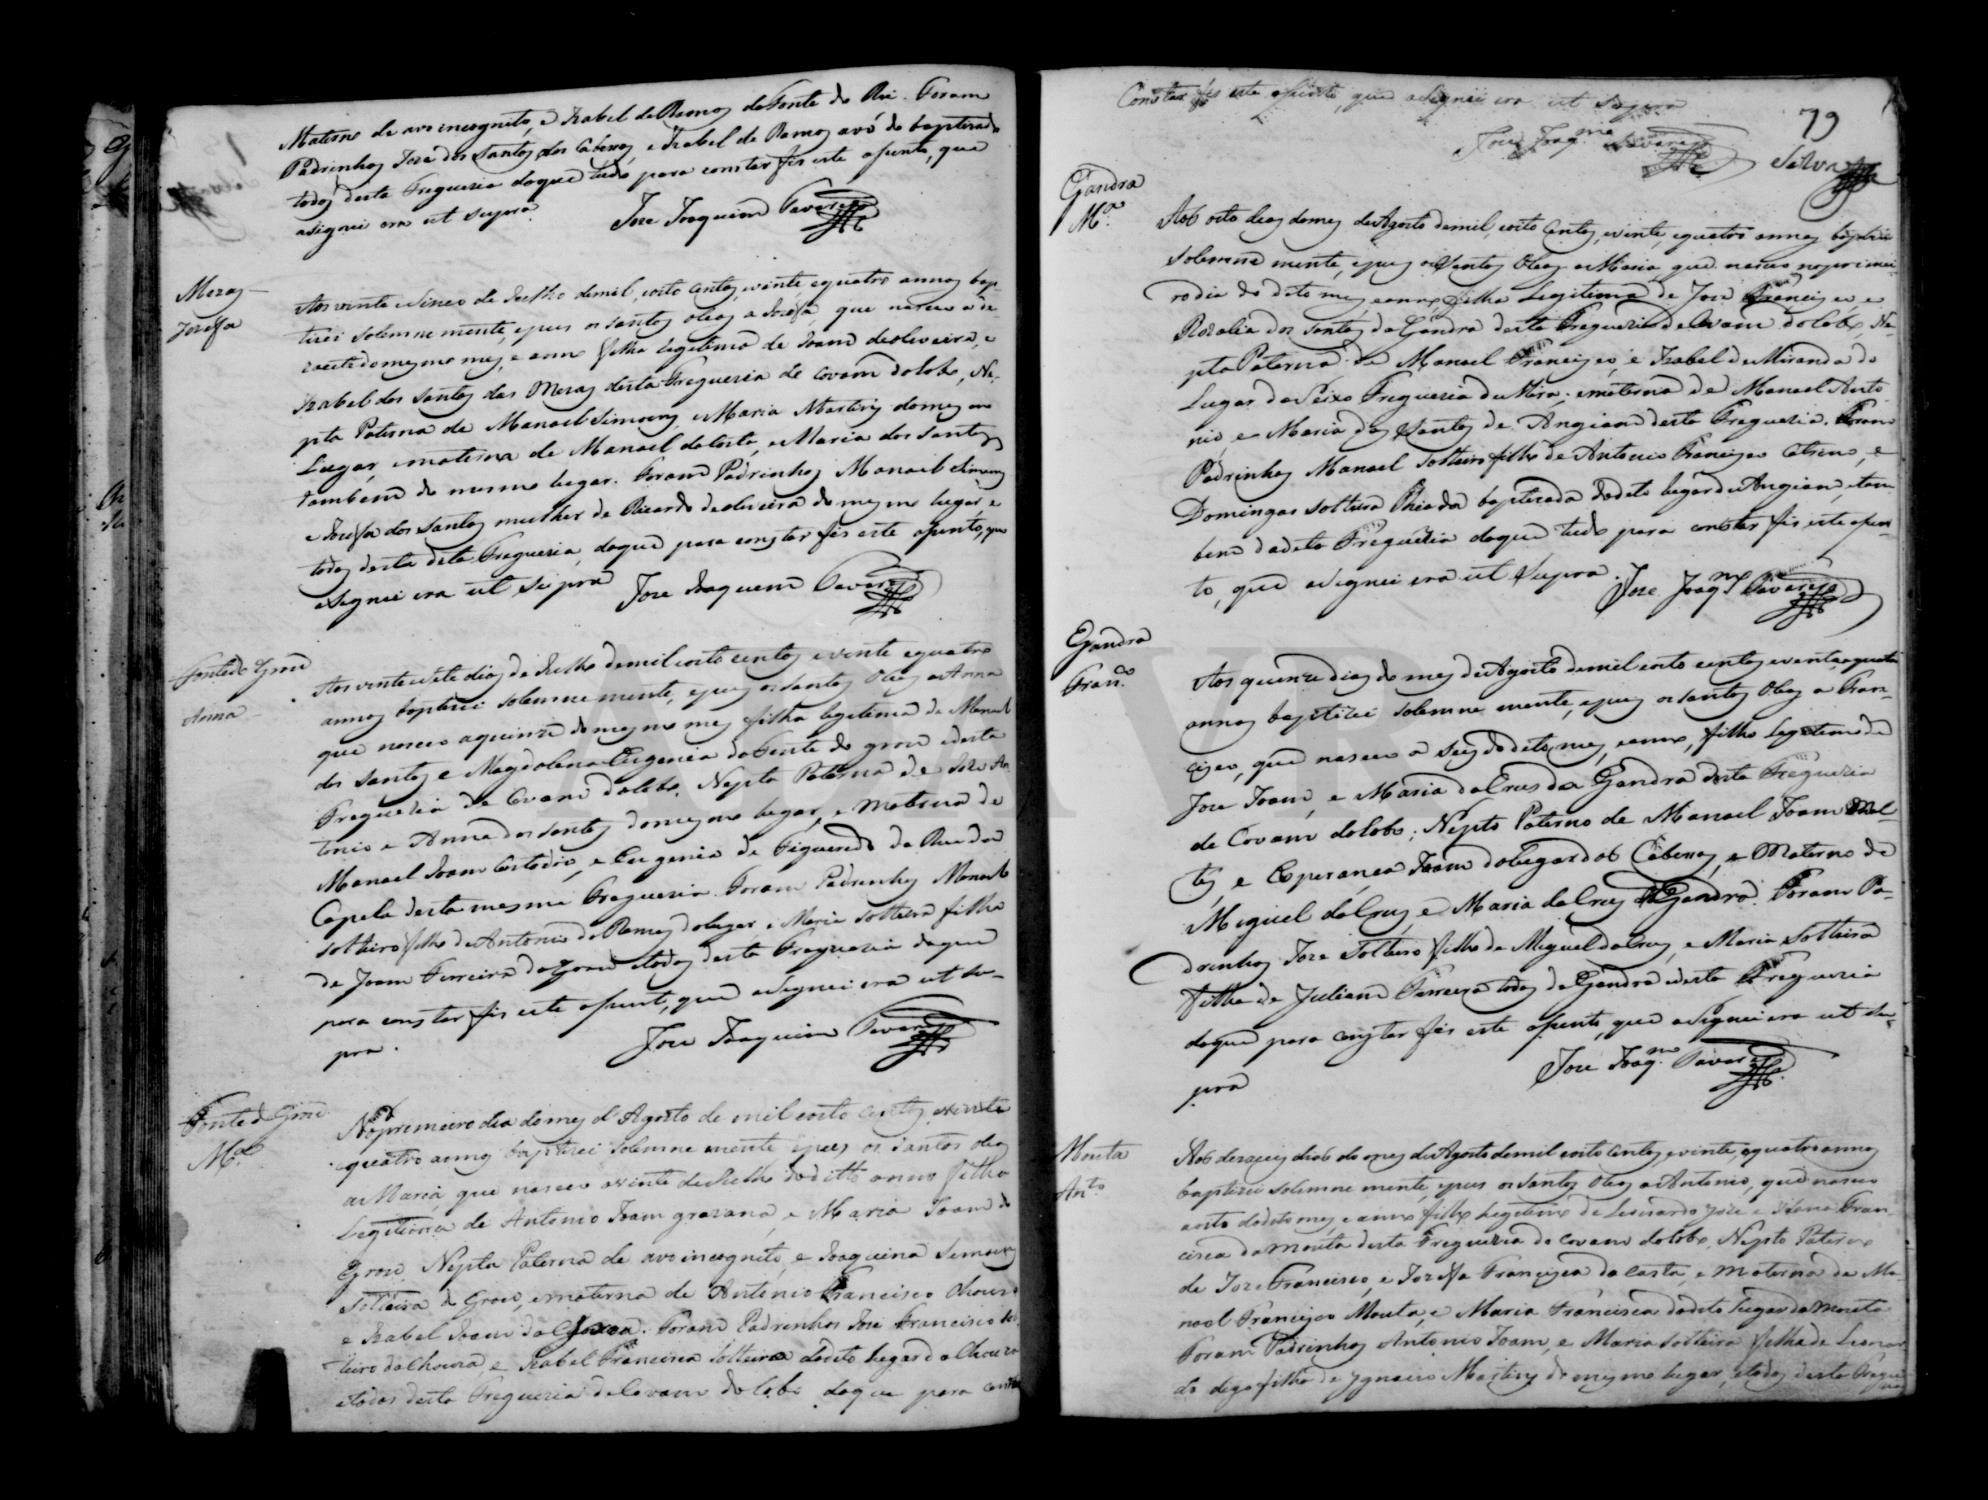 Materno de avo incognito, e Izabel de Ramos da Fonte do Rei. Foram
Padrinhos José dos Santos dos Cabesos, e Izabel de Ramos avó do baptizado
todos desta Freguezia doque tudo para constar fis este asento, que
asignei era ut supra.
Joze Joaquim Tavares
Mezas
Jozefa
Aos vinte e sinco de Julho de mil, oito centos, e vinte, e quatro annos bap
tizei solemne mente, e pus os santos oleos a Jozefa, que nasceo a de
zasete do mesmo mes, e anno filha legitima de Joam de oliveira, e
Izabel dos Santos das Mezas desta Freguezia de Covam do lobo, Ne-
pta Paterna de Manoel Simoens, e Maria Martins do mesmo
Lugar, e materna de Manoel da Costa, e Maria dos Santos
tambem do mesmo lugar. Foram Padrinhos Manoel Simoens
e Jozefa dos Santos mulher de Ricardo de oliveira do mesmo lugar, e
todos desta dita Freguezia, doque para constar fis este asento, que
asignei era ut supra Joze Joaquim Tavares
Fonte do Grou
Anna
Aos vinte e sete dias de Julho de mil oito centos e vinte e quatro
annos baptizei solemne mente, e pus os santos oleos a Anna
que nasceo a quinze do mesmo mes filha legitima de Manoel
dos Santos e Magdalena Eugenia da Fonte do grou desta
Freguezia de Covam do lobo. Nepta Paterna de Joze An
tonio e Anna dos Santos do mesmo lugar, e Materna de
Manoel Joam Custodio, e Eugenia de Figueredo da Rua da
Capela desta mesma Freguezia. Foram Padrinhos Manoel
solteiro filho de Antonio de Ramos do lugar, e Maria solteira filha
de Joam Ferreira do Grou e todos desta Freguezia doque
para constar fis este asento, que asignei era ut su-
pra.
Joze Joaquim Tavares
Fonte do Grou
M.a
No premeiro dia do mes d Agosto de mil e oito centos e vinte
quatro annos baptizei solemne mente e pus os santos oleos
a Maria, que nasceo a vinte de Julho do ditto anno filha
Legitima de Antonio Joam gravana, e Maria Joam do
Grou. Nepta Paterna de avo incognito, e Joaquina Simoens
Solteira do Grou, e materna de Antonio Francisco Chouza
e Izabel Joam da Chouza. Foram Padrinhos José Francisco sol
teiro da Chouza, e Izabel Francisca solteira do dito lugar da Chouza
e todos desta Freguezia de Covam do lobo doque para
Constar fis este asento, que asignei era ut supra
Joze Joaq.m Tavares
79
Silva
Gandra
M.a
Aos oito dias do mes de Agosto de mil, oito centos, e vinte, e quatro annos baptizei
solemne mente, e pus os santos oleos a Maria que nasceo no primei
ro dia do dito mes, e anno filha Legitima de Joze Francisco e
Rozalia dos Santos da Gandra desta Freguezia de Covam do lobo, Ne
pta Paterna de Manoel Francisco, e Izabel de Miranda do
Lugar do Seixo Freguezia de Mira; e materna de Manoel Anto
nio e Maria dos Santos de Angiam desta Freguezia. Foram
Padrinhos Manoel solteiro filho de Antonio Francisco, e
Domingas solteira Thia da baptizada do dito lugar de Angiam, e tam
bem da dita Freguezia doque tudo para constar fis este asen
to, que asignei era ut supra. Joze Joaq.m Tavares
Gandra
Fran.co
Aos quinze dias do mes de Agosto de mil oito centos e vinte e quatro
annos baptizei solemne mente, e pus os santos oleos a Fran-
cisco, que nasceo a seis do dito mes, e anno, filho Legitimo de
Joze Joam, e Maria da Crus da Gandra desta Freguezia
de Covam do lobo; Nepto Paterno de Manoel Joam Mal-
tes e Esperança Joam do lugar dos Cabesos, e Materno de
Miguel da Crus e Maria da Crus da Gandra. Foram Pa-
drinhos Joze solteiro filho de Miguel da Crus, e Maria Solteira
filha de Juliam Ferreira todos da Gandra e desta Freguezia
doque para constar fis este asento, que asignei era ut su-
pra
Joze Joaq.m Tavares
Mouta
Ant.o
Aos dezaseis dias do mes de Agosto de mil oito centos, e vinte, e quatro annos
baptizei solemne mente, e pus os santos oleos a Antonio, que nasceo
a oito do dito mes, e anno filho Legitimo de Leonardo Joze e Fran-
cisca da Mouta desta Freguezia de Covam do lobo. Nepto Paterno
de Joze Francisco, e Jozefa Francisca da Costa, e Materno de Ma-
noel Francisco Mouta, e Maria Francisca do dito Lugar da Mouta
Foram Padrinhos Antonio Joam, e Maria solteira filha de Leonar
do digo filha de Ygnacio Martins do mesmo lugar, e todos desta Fregue